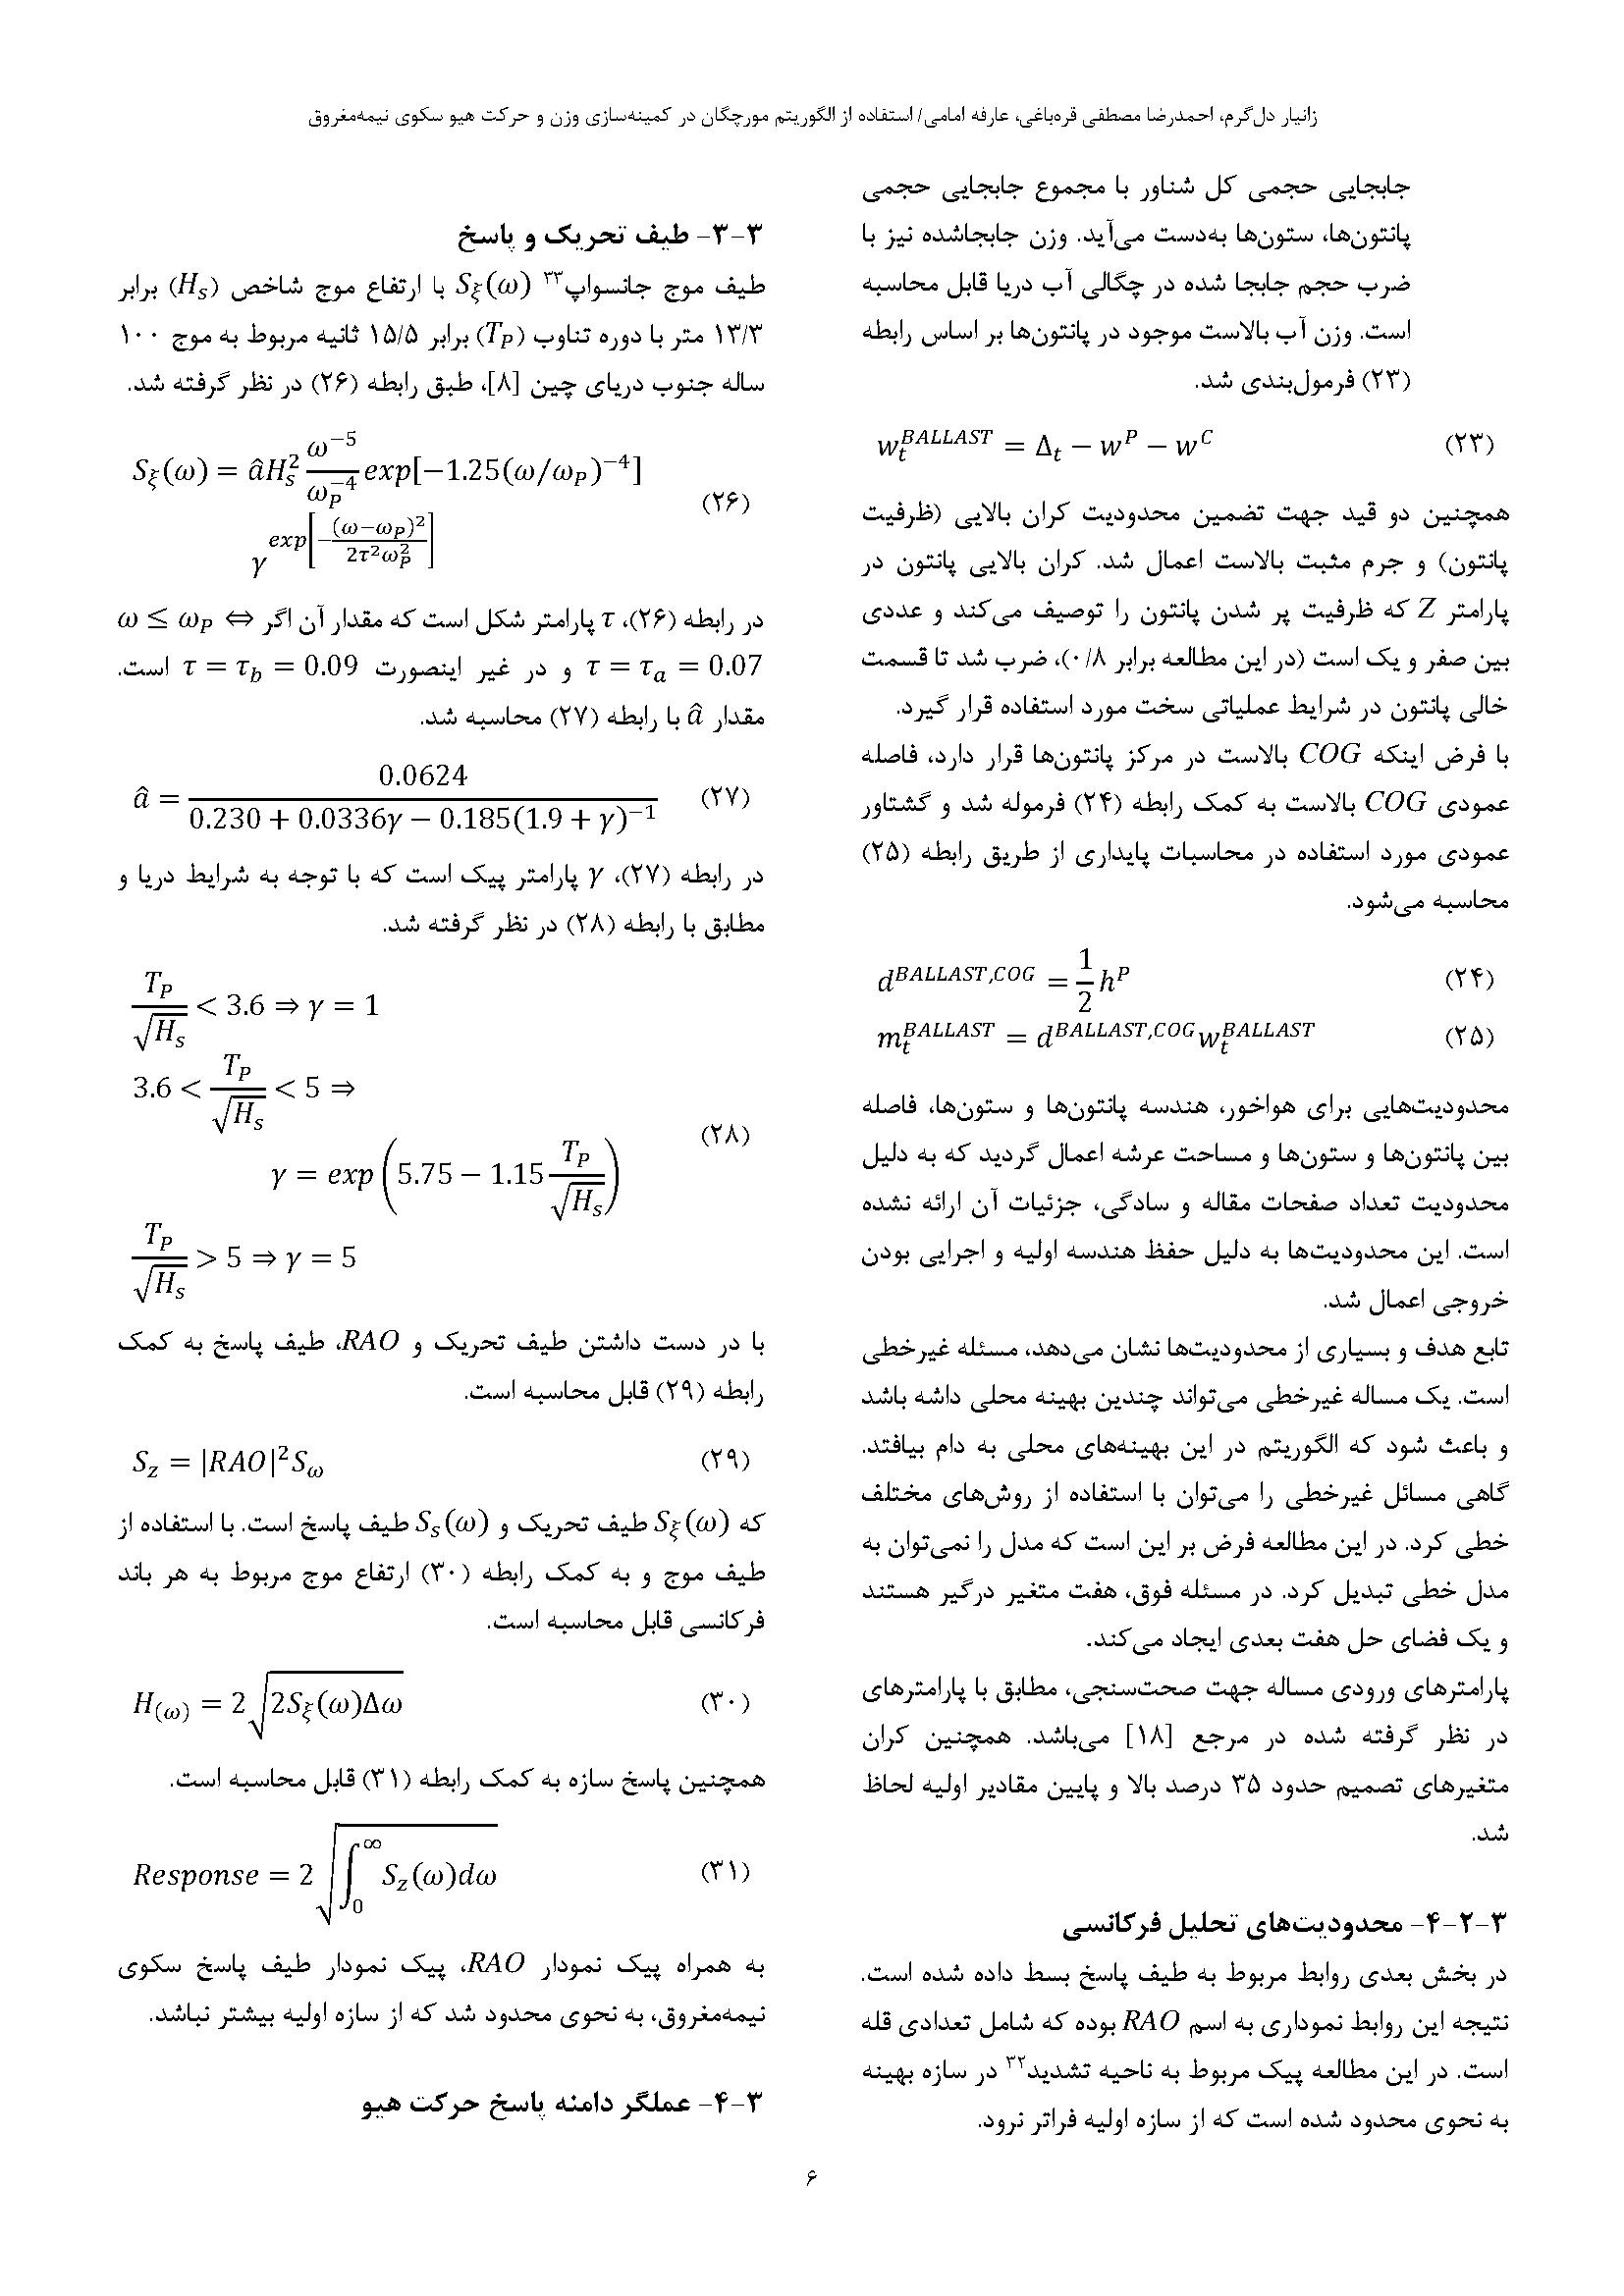 زانیار دل‌گرم، احمدرضا مصطفی قره‌باغی، عارفه امامی/ استفاده از الگوریتم مورچگان در کمینه‌سازی وزن و حرکت هیو سکوی نیمه‌مغروق
جابجایی حجمی کل شناور با مجموع جابجایی حجمی
پانتون‌ها، ستون‌ها به‌دست می‌آید. وزن جابجاشده نیز با
ضرب حجم جابجا شده در چگالی آب دریا قابل محاسبه
است. وزن آب بالاست موجود در پانتون‌ها بر اساس رابطه
(۲۳) فرمول‌بندی شد.
w_t^{BALLAST} = Δ_t − w^P − w^C (۲۳)
همچنین دو قید جهت تضمین محدودیت کران بالایی (ظرفیت
پانتون) و جرم مثبت بالاست اعمال شد. کران بالایی پانتون در
پارامتر Z که ظرفیت پر شدن پانتون را توصیف می‌کند و عددی
بین صفر و یک است (در این مطالعه برابر ۰/۸)، ضرب شد تا قسمت
خالی پانتون در شرایط عملیاتی سخت مورد استفاده قرار گیرد.
با فرض اینکه COG بالاست در مرکز پانتون‌ها قرار دارد، فاصله
عمودی COG بالاست به کمک رابطه (۲۴) فرموله شد و گشتاور
عمودی مورد استفاده در محاسبات پایداری از طریق رابطه (۲۵)
محاسبه می‌شود.
d^{BALLAST,COG} = \frac{1}{2} h^P (۲۴)
m_t^{BALLAST} = d^{BALLAST,COG} w_t^{BALLAST} (۲۵)
محدودیت‌هایی برای هواخور، هندسه پانتون‌ها و ستون‌ها، فاصله
بین پانتون‌ها و ستون‌ها و مساحت عرشه اعمال گردید که به دلیل
محدودیت تعداد صفحات مقاله و سادگی، جزئیات آن ارائه نشده
است. این محدودیت‌ها به دلیل حفظ هندسه اولیه و اجرایی بودن
خروجی اعمال شد.
تابع هدف و بسیاری از محدودیت‌ها نشان می‌دهد، مسئله غیرخطی
است. یک مساله غیرخطی می‌تواند چندین بهینه محلی داشه باشد
و باعث شود که الگوریتم در این بهینه‌های محلی به دام بیافتد.
گاهی مسائل غیرخطی را می‌توان با استفاده از روش‌های مختلف
خطی کرد. در این مطالعه فرض بر این است که مدل را نمی‌توان به
مدل خطی تبدیل کرد. در مسئله فوق، هفت متغیر درگیر هستند
و یک فضای حل هفت بعدی ایجاد می‌کند.
پارامترهای ورودی مساله جهت صحت‌سنجی، مطابق با پارامترهای
در نظر گرفته شده در مرجع [۱۸] می‌باشد. همچنین کران
متغیرهای تصمیم حدود ۳۵ درصد بالا و پایین مقادیر اولیه لحاظ
شد.
۳-۲-۴- محدودیت‌های تحلیل فرکانسی
در بخش بعدی روابط مربوط به طیف پاسخ بسط داده شده است.
نتیجه این روابط نموداری به اسم RAO بوده که شامل تعدادی قله
است. در این مطالعه پیک مربوط به ناحیه تشدید۳۲ در سازه بهینه
به نحوی محدود شده است که از سازه اولیه فراتر نرود.
۳-۳- طیف تحریک و پاسخ
طیف موج جانسواپ۳۳ S_ξ(ω) با ارتفاع موج شاخص (H_s) برابر
۱۳/۳ متر با دوره تناوب (T_P) برابر ۱۵/۵ ثانیه مربوط به موج ۱۰۰
ساله جنوب دریای چین [۸]، طبق رابطه (۲۶) در نظر گرفته شد.
S_ξ(ω) = âH_s^2 \frac{ω^{−5}}{ω_P^{−4}} exp[−1.25(ω/ω_P)^{−4}]
(۲۶)
γ^{exp[−\frac{(ω−ω_P)^2}{2τ^2ω_P^2}]}
در رابطه (۲۶)، τ پارامتر شکل است که مقدار آن اگر ω ≤ ω_P ⇔
τ = τ_a = 0.07 و در غیر اینصورت τ = τ_b = 0.09 است.
مقدار â با رابطه (۲۷) محاسبه شد.
â = \frac{0.0624}{0.230 + 0.0336γ − 0.185(1.9 + γ)^{−1}} (۲۷)
در رابطه (۲۷)، γ پارامتر پیک است که با توجه به شرایط دریا و
مطابق با رابطه (۲۸) در نظر گرفته شد.
\frac{T_P}{\sqrt{H_s}} < 3.6 ⇒ γ = 1
3.6 < \frac{T_P}{\sqrt{H_s}} < 5 ⇒
(۲۸)
γ = exp(5.75 − 1.15 \frac{T_P}{\sqrt{H_s}})
\frac{T_P}{\sqrt{H_s}} > 5 ⇒ γ = 5
با در دست داشتن طیف تحریک و RAO، طیف پاسخ به کمک
رابطه (۲۹) قابل محاسبه است.
S_z = |RAO|^2 S_ω (۲۹)
که S_ξ(ω) طیف تحریک و S_s(ω) طیف پاسخ است. با استفاده از
طیف موج و به کمک رابطه (۳۰) ارتفاع موج مربوط به هر باند
فرکانسی قابل محاسبه است.
H_{(ω)} = 2\sqrt{2S_ξ(ω)Δω} (۳۰)
همچنین پاسخ سازه به کمک رابطه (۳۱) قابل محاسبه است.
Response = 2\sqrt{\int_0^∞ S_z(ω)dω} (۳۱)
به همراه پیک نمودار RAO، پیک نمودار طیف پاسخ سکوی
نیمه‌مغروق، به نحوی محدود شد که از سازه اولیه بیشتر نباشد.
۳-۴- عملگر دامنه پاسخ حرکت هیو
۶